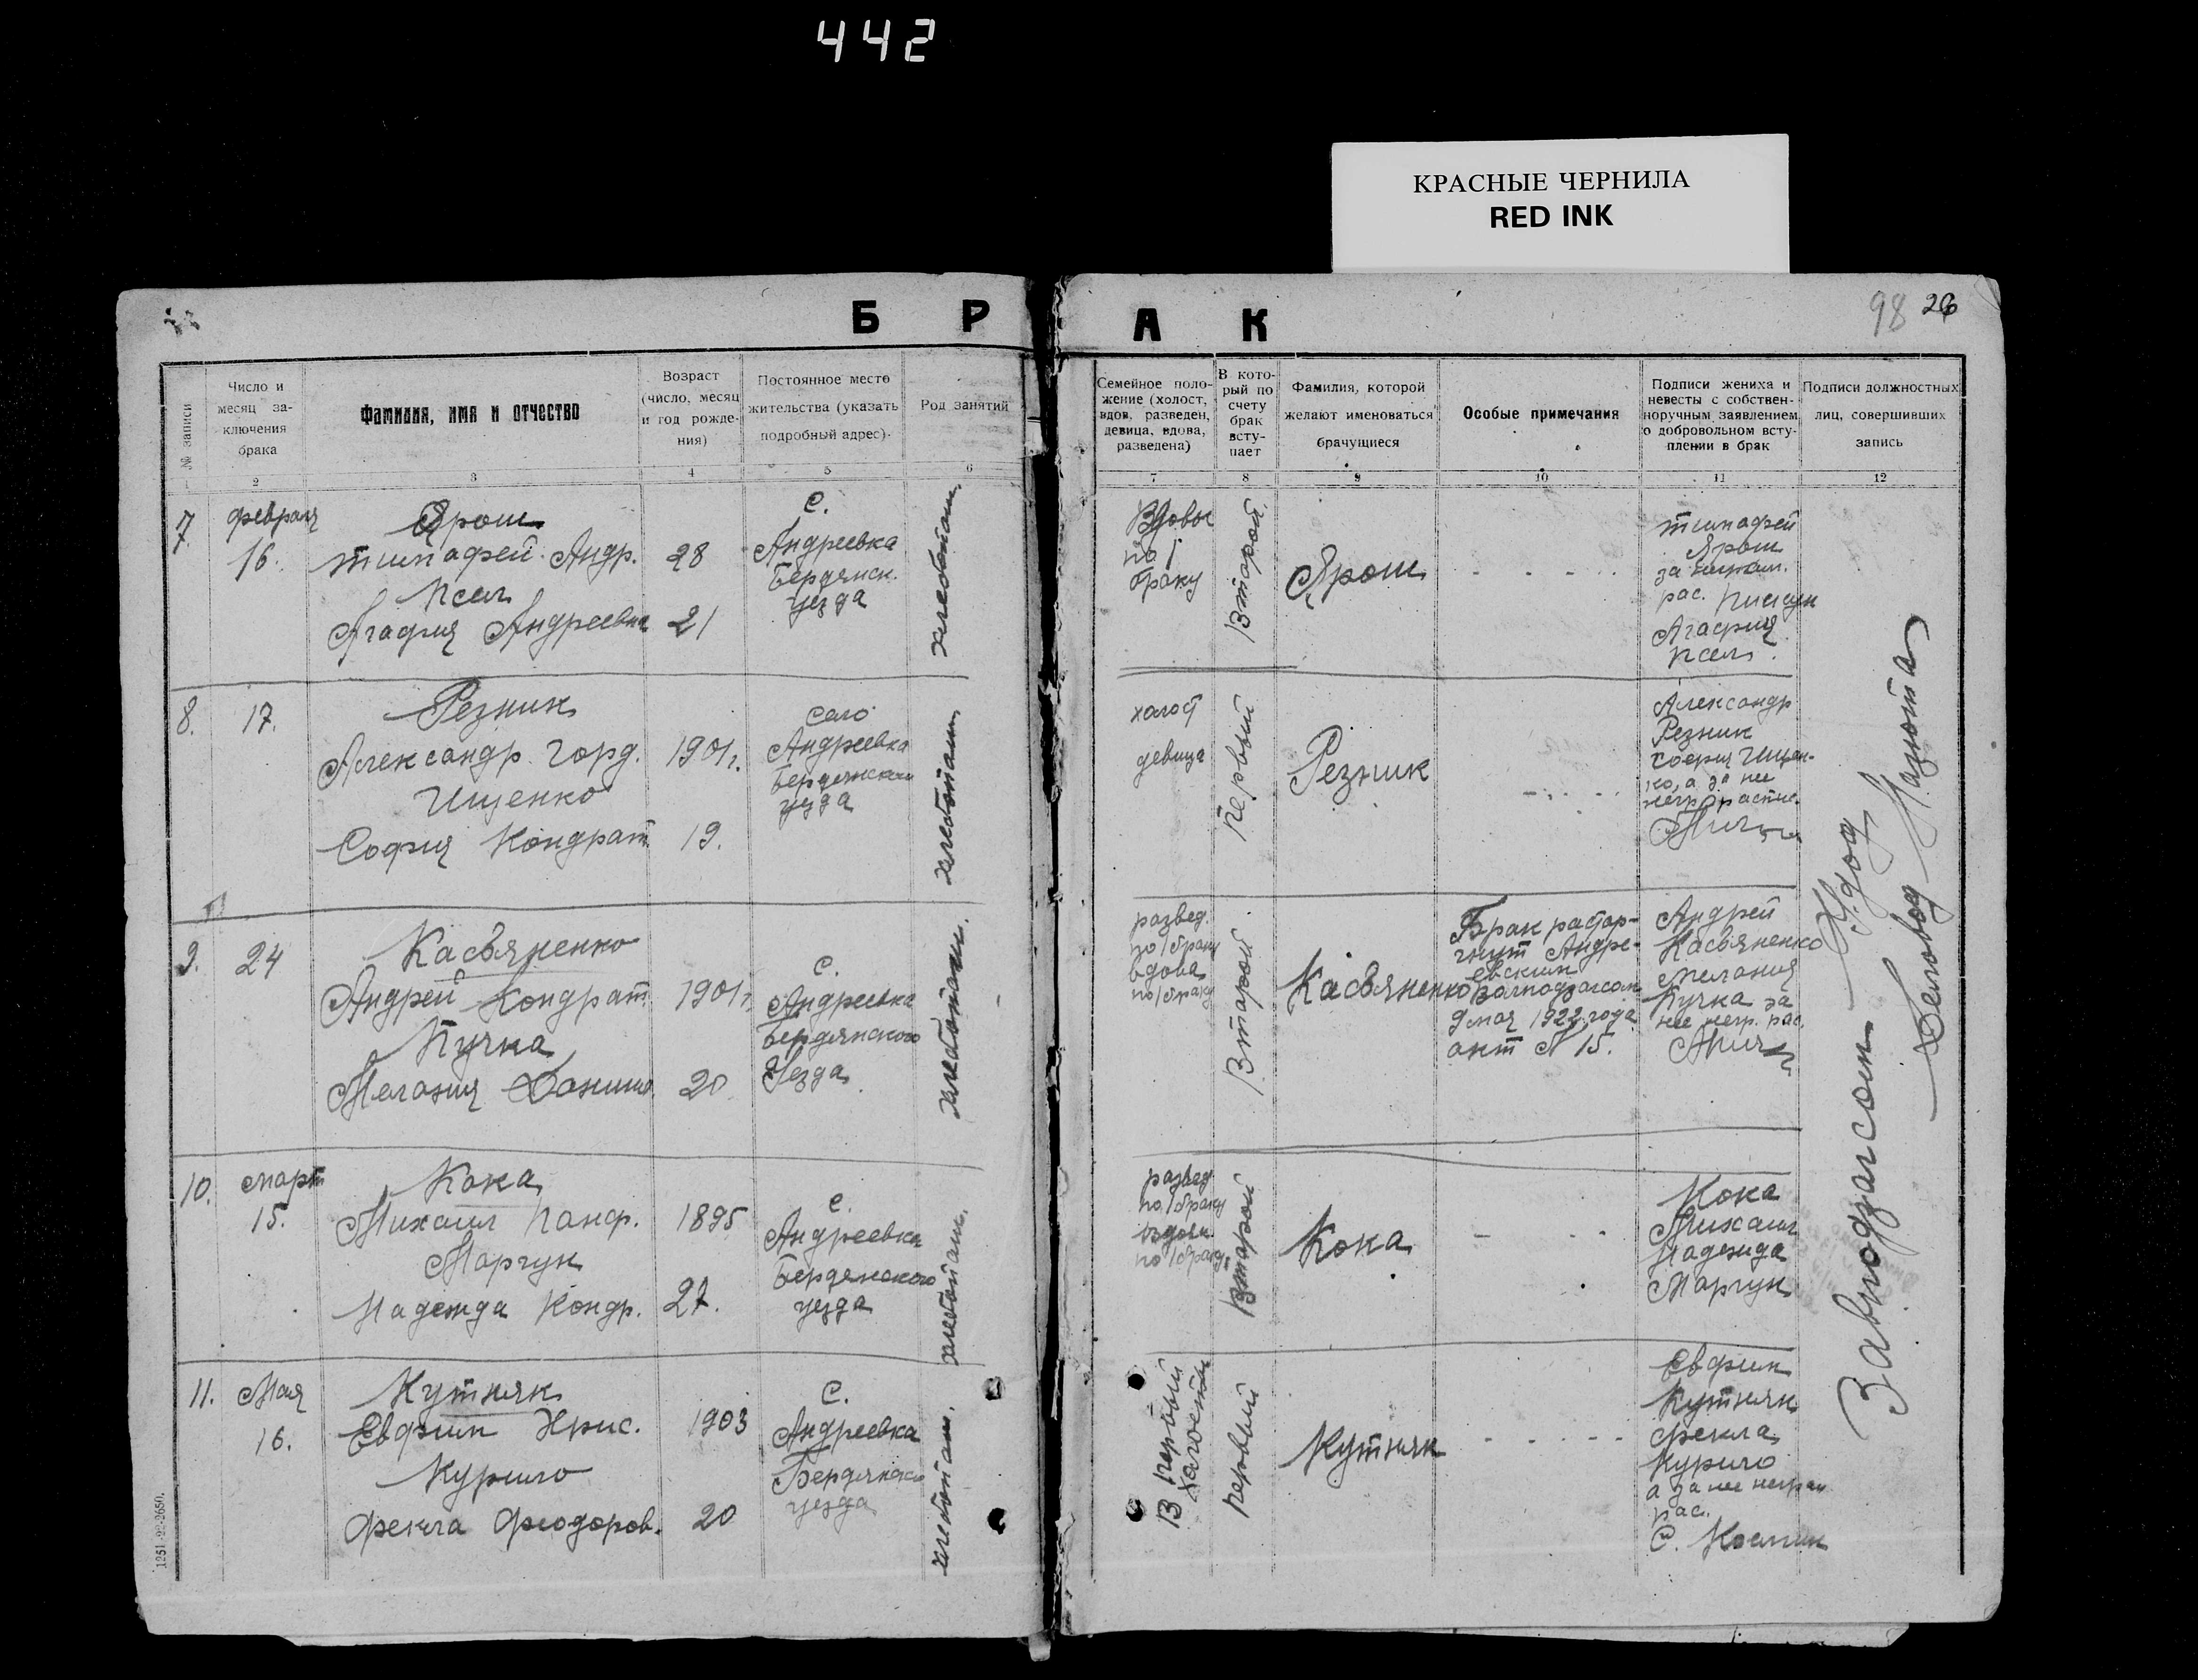 442
КРАСНЫЕ ЧЕРНИЛА
RED INK
Б Р А К
98 26
№ записи
Число и месяц заключения брака
Фамилия, имя и отчество
Возраст
(число, месяц
и год рожде-
ния)
Постоянное место
жительства (указать
подробный адрес).
Род занятий
Семейное поло-
жение (холост,
вдов, разведен,
девица, вдова,
разведена)
В кото-
рый по
счету
брак
всту-
пает
Фамилия, которой
желают именоваться
брачущиеся
Особые примечания
Подписи жениха и
невесты с собствен-
норучным заявлением
о добровольном всту-
плении в брак
Подписи должностных
лиц, совершивших
запись
1 2 3 4 5 6 7 8 9 10 11 12
7.
февраля
16.
Ярош
Тимофей Андр.
28
Псел
Агафия Андреевна
21
с.
Андреевка
Бердянск.
уезда
хлебопаш.
Вдовы
по 1
браку
Второй
Ярош
Тимофей
Ярош
за неграм.
рас.
Агафия
Псел
8.
17.
Резник
Александр Горд.
1901 г.
Ищенко
София Кондрат.
19.
село
Андреевка
Бердянского
уезда
хлебопаш.
холост
девица
первый
Резник
Александр
Резник
София Ищен-
ко, а за нее
негр. распис.
9.
24
Касьяненко
Андрей Кондрат.
1901 г.
Пучка
Мелания Данил.
20
с.
Андреевка
Бердянского
Уезда
хлебопаш.
развед.
по 1 браку
вдова
по 1 браку
Второй
Касьяненко
Брак растор-
гнут Андре-
евским
Волподзагсом
9 мая 1922 года
акт № 15.
Андрей
Касьяненко
Мелания
Пучка за
нее негр. рас.
10.
март
15.
Кока
Михаил Панф.
1895
Марчук
Надежда Кондр.
27.
с.
Андреевка
Бердянского
уезда
хлебопаш.
развед.
по 1 браку
вдова
по 1 браку
Второй
Кока
Кока
Михаил
Надежда
Марчук
11.
Мая
16.
Кутняк
Евфим Хрис.
1903
Курило
Фекла Феодоров.
20
с.
Андреевка
Бердянского
уезда
хлебопаш.
В первый
холостые
первый
Кутняк
Евфим
Кутняк
Фекла
Курило
а за нее неграм
рас.
С.
Завподзагсом
Деловод
1251-22-2650.